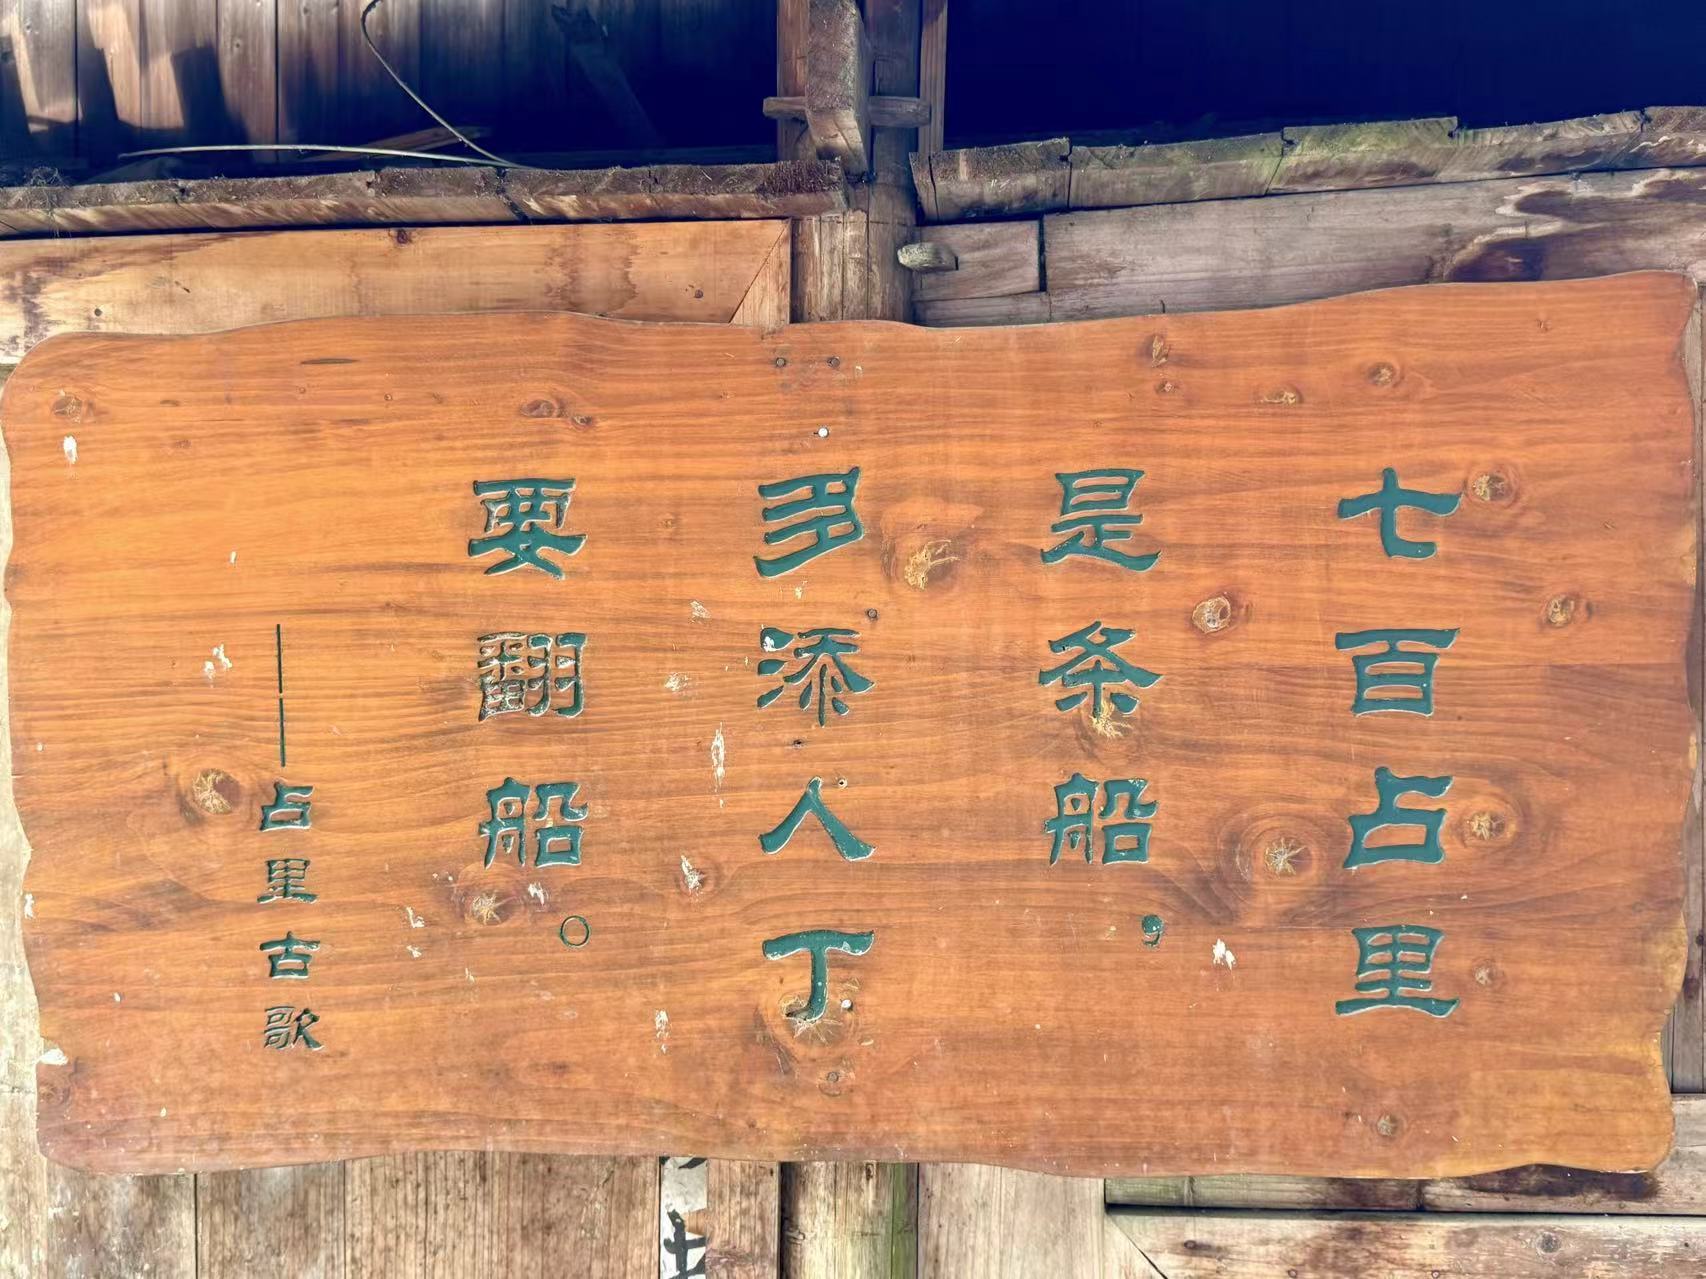 七百占里
是条船，
多添人丁
要翻船。
——占里古歌